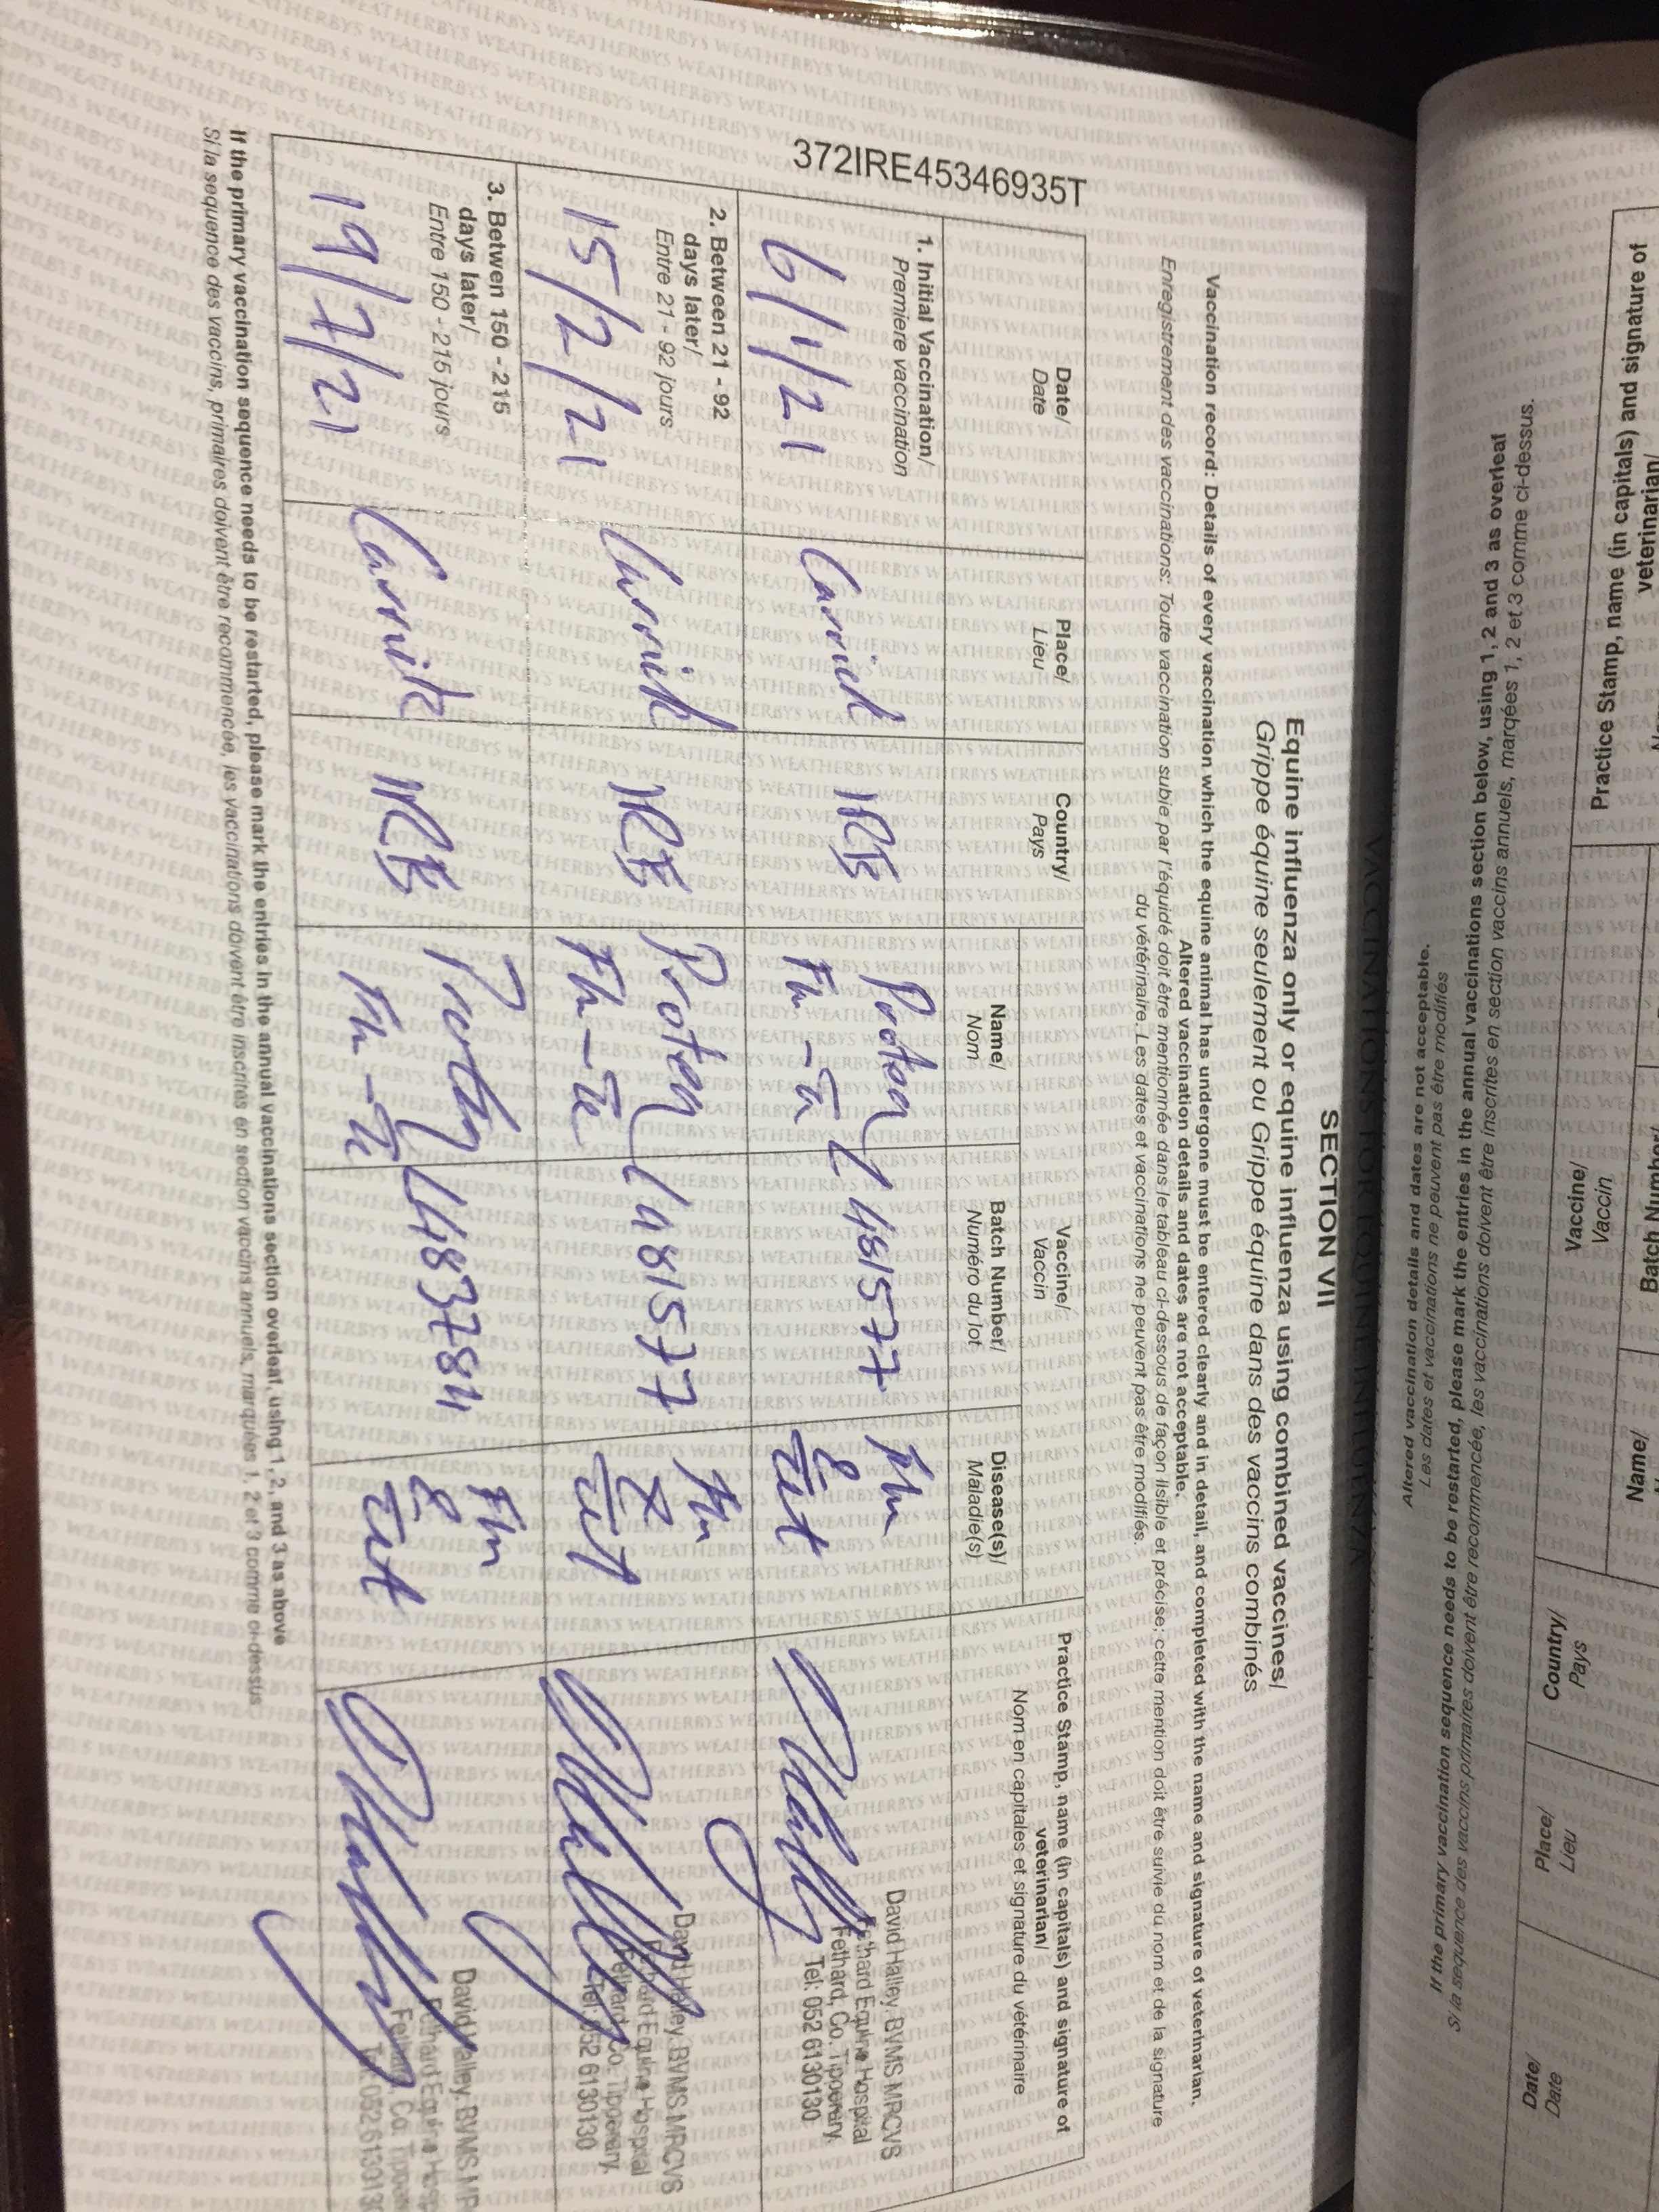 372IRE45346935T
SECTION VII
Equine influenza only or equine influenza using combined vaccines/
Grippe équine seulement ou Grippe équine dans des vaccins combinés
Vaccination record: Details of every vaccination which the equine animal has undergone must be entered clearly and in detail, and completed with the name and signature of veterinarian.
Altered vaccination details and dates are not acceptable.
Enregistrement des vaccinations: Toute vaccination subie par l'équidé doit être mentionnée dans le tableau ci-dessous de façon lisible et précise; cette mention doit être suivie du nom et de la signature
du vétérinaire. Les dates et vaccinations ne peuvent pas être modifiés.
Date/
Date
Place/
Lieu
Country/
Pays
Vaccine/
Vaccin
Name/
Nom
Batch Number/
Numéro du lot
Disease(s)/
Maladie(s)
Practice Stamp, name (in capitals) and signature of
veterinarian/
Nom en capitales et signature du vétérinaire
1. Initial Vaccination/
Premiere vaccination
6/1/21
Carrick
IRE
Proteq
Flu-Te
L481577
Flu
&
Tet
David Halley, BVMS MRCVS
Fethard Equine Hospital
Fethard, Co. Tipperary.
Tel: 052 6130130
2. Between 21 - 92
days later/
Entre 21 - 92 jours
15/2/21
Carrick
IRE
Proteq
Flu-Te
L481577
Flu
&
Tet
David Halley, BVMS MRCVS
Fethard Equine Hospital
Fethard, Co. Tipperary.
Tel: 052 6130130
3. Betwen 150 - 215
days later/
Entre 150 - 215 jours
19/7/21
Carrick
IRE
Proteq
Flu-Te
L483784
Flu
&
Tet
David Halley, BVMS MR
Fethard Equine Hosp
Fethard, Co. Tipper
Tel: 052 613013
If the primary vaccination sequence needs to be restarted, please mark the entries in the annual vaccinations section overleaf, using 1, 2, and 3 as above
Si la sequence des vaccins, primaires doivent être recommencée, les vaccinations doivent être inscrites en section vaccins annuels, marquées 1, 2 et 3 comme ci-dessus
VACCINATIONS FOR EQUINE INFLUENZA
Altered vaccination details and dates are not acceptable.
Les dates et vaccinations ne peuvent pas être modifiés
If the primary vaccination sequence needs to be restarted, please mark the entries in the annual vaccinations section below, using 1, 2 and 3 as overleaf
Si la sequence des vaccins primaires doivent être recommencée, les vaccinations doivent être inscrites en section vaccins annuels, marqées 1, 2 et 3 comme ci-dessus.
Date/
Date
Place/
Lieu
Country/
Pays
Vaccine/
Vaccin
Name/
Batch Number/
Practice Stamp, name (in capitals) and signature of
veterinarian/